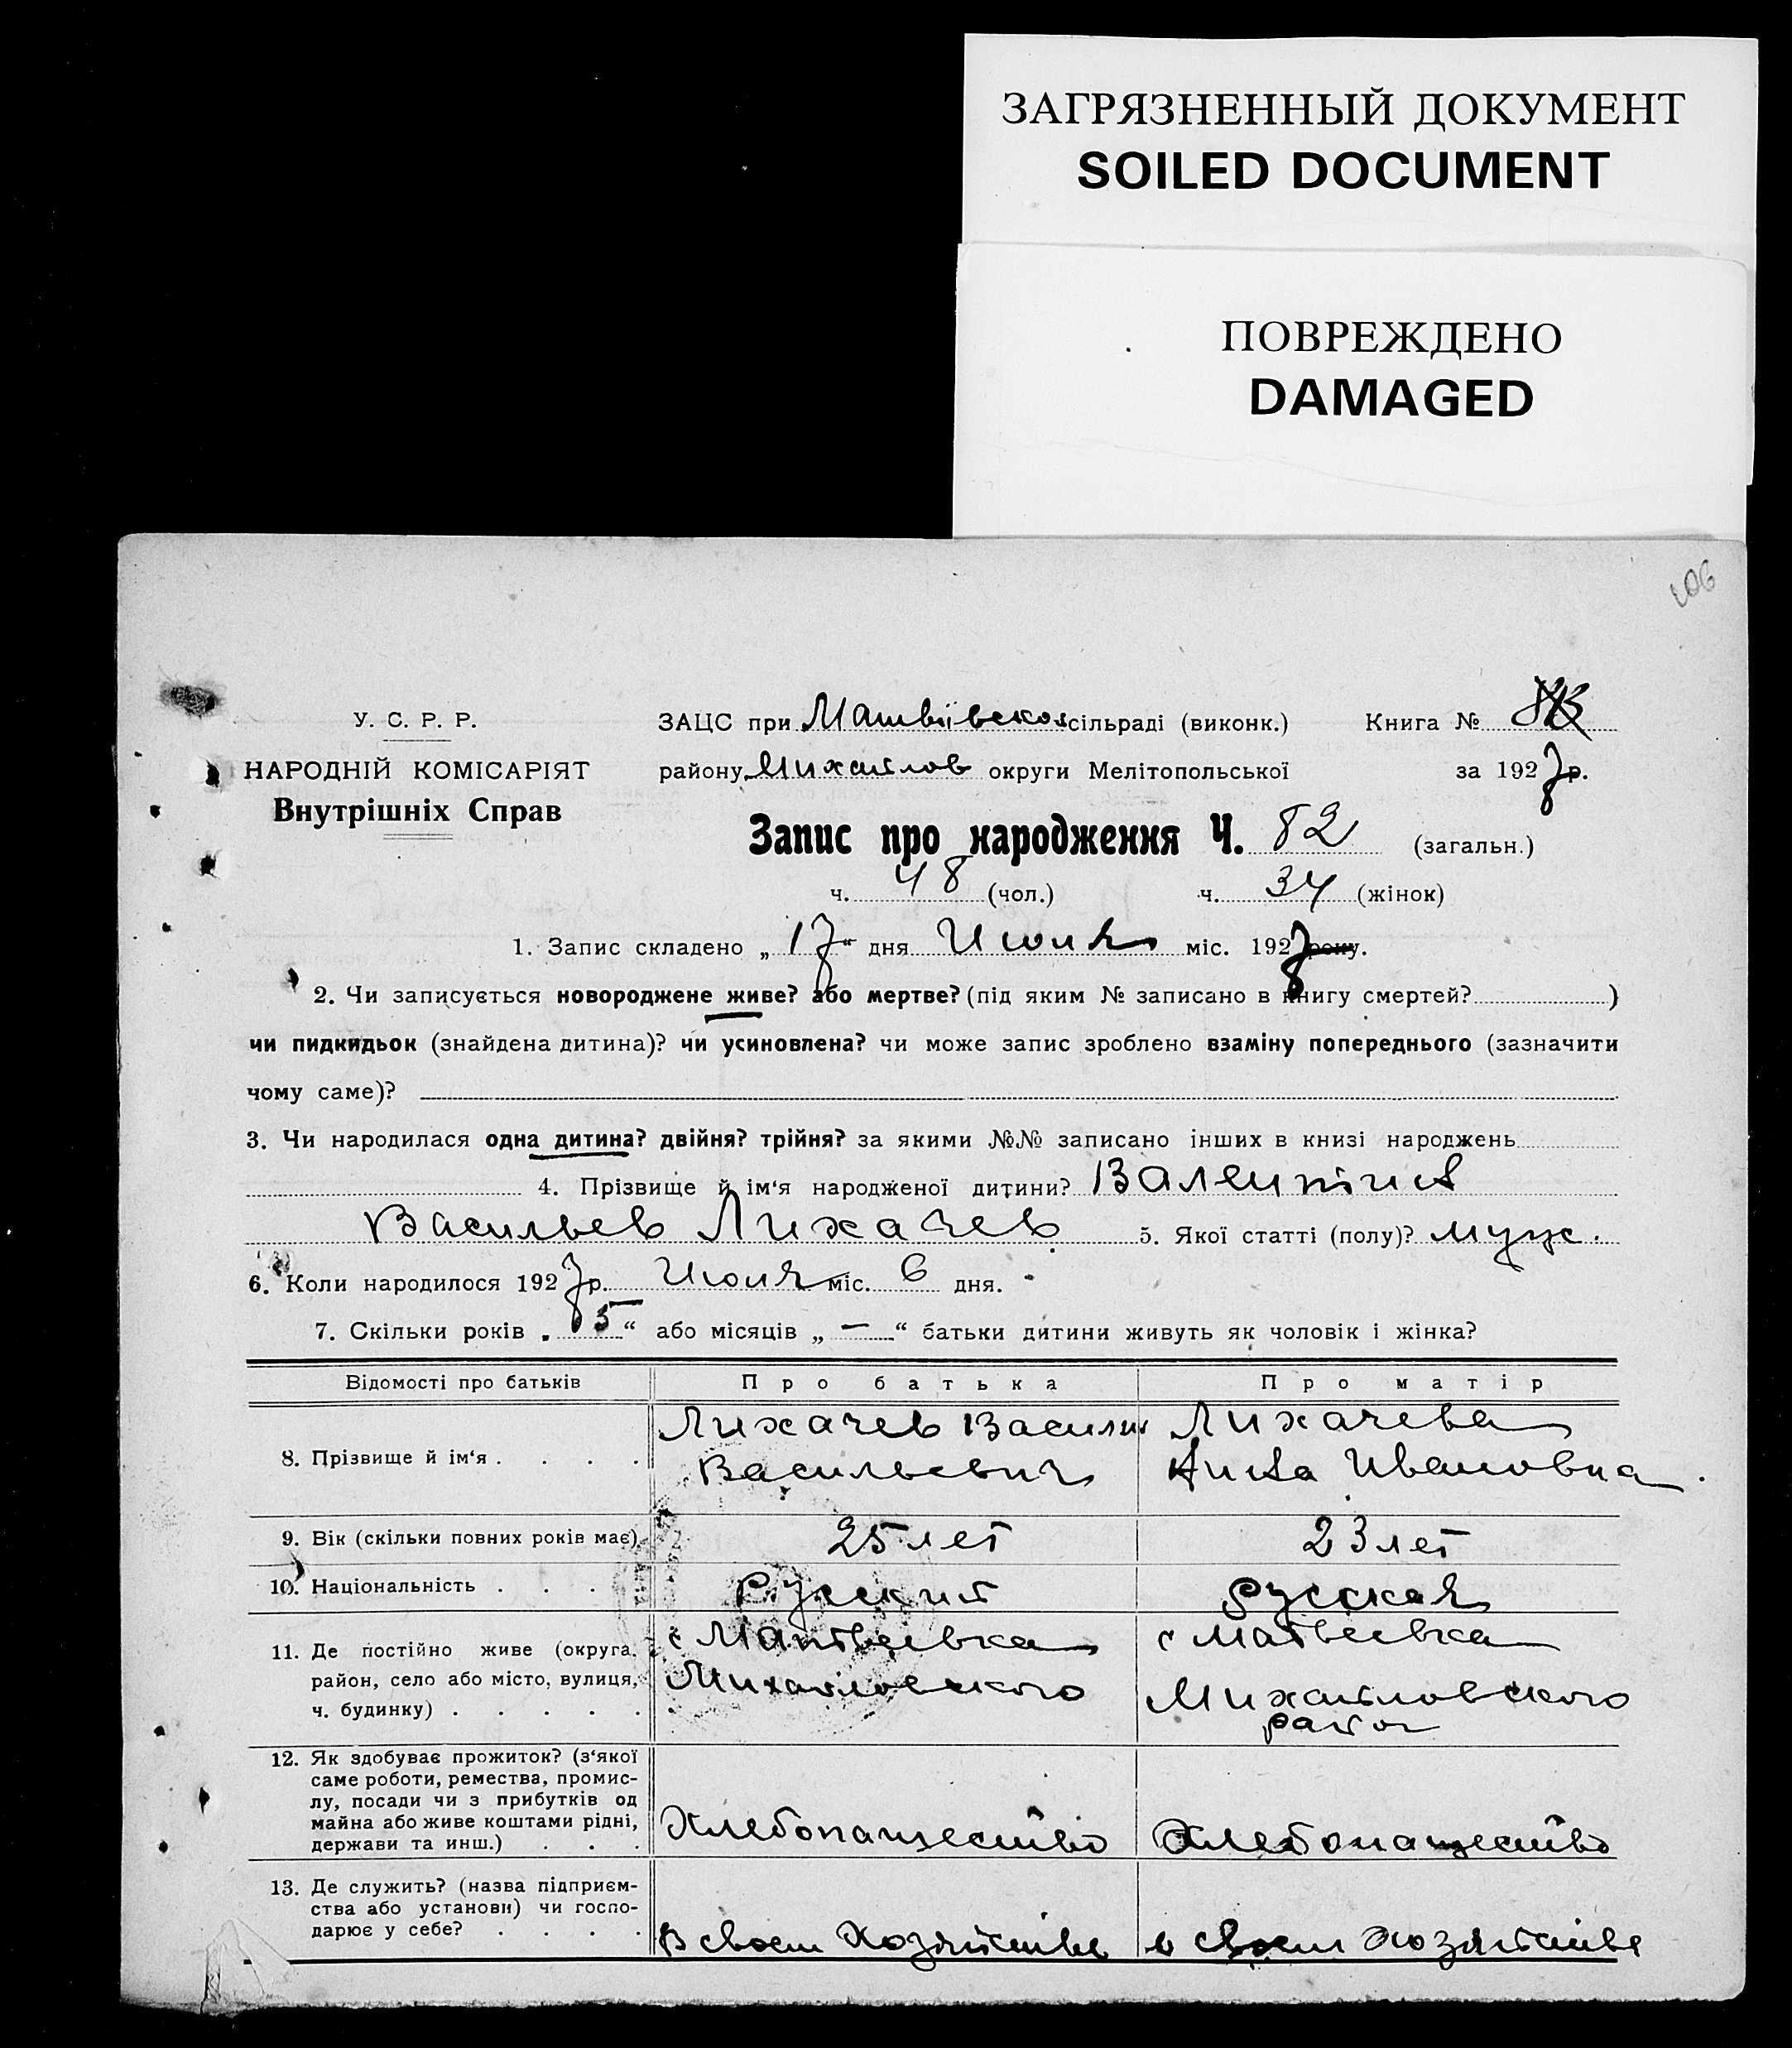 ЗАГРЯЗНЕННЫЙ ДОКУМЕНТ
SOILED DOCUMENT
ПОВРЕЖДЕНО
DAMAGED
106
У. С. Р. Р.
НАРОДНІЙ КОМІСАРІЯТ
Внутрішніх Справ
ЗАЦС при Матвіївской сільраді (виконк.) Книга №
району Михайлов округи Мелітопольської за 1927 р.
Запис про народження Ч. 82 (загальн.)
ч. 48 (чол.) ч. 34 (жінок)
1. Запис складено „17“ дня Июля міс. 1927 року.
2. Чи записується новороджене живе? або мертве? (під яким № записано в книгу смертей? )
чи пидкидьок (знайдена дитина)? чи усиновлена? чи може запис зроблено взаміну попереднього (зазначити
чому саме)?
3. Чи народилася одна дитина? двійня? трійня? за якими №№ записано інших в книзі народжень
4. Прізвище й ім‘я народженої дитини? Валентина
Васильев Лихачев 5. Якої статті (полу)? муж.
6. Коли народилося 1927 р. Июля міс. 6 дня.
7. Скільки років „ 5 “ або місяців „ — “ батьки дитини живуть як чоловік і жінка?
Відомості про батьків Про батька Про матір
8. Прізвище й ім‘я . . . .
Лихачев Василий
Васильевич
Лихачева
Анна Ивановна
9. Вік (скільки повних років має) 25 лет 23 лет
10. Національність . . . . Русский русская
11. Де постійно живе (округа, район, село або місто, вулиця, ч. будинку) . . . . .
с Матвеевка
Михайловского
с Матвеевка
Михайловского
район
12. Як здобуває прожиток? (з‘якої
саме роботи, ремества, промис-
лу, посади чи з прибутків од
майна або живе коштами рідні,
держави та инш.) . . .
Хлебопашество Хлебопашество
13. Де служить? (назва підприєм-
ства або установи) чи госпо-
дарює у себе? . . . .
В своем Хозяйстве в своем хозяйстве